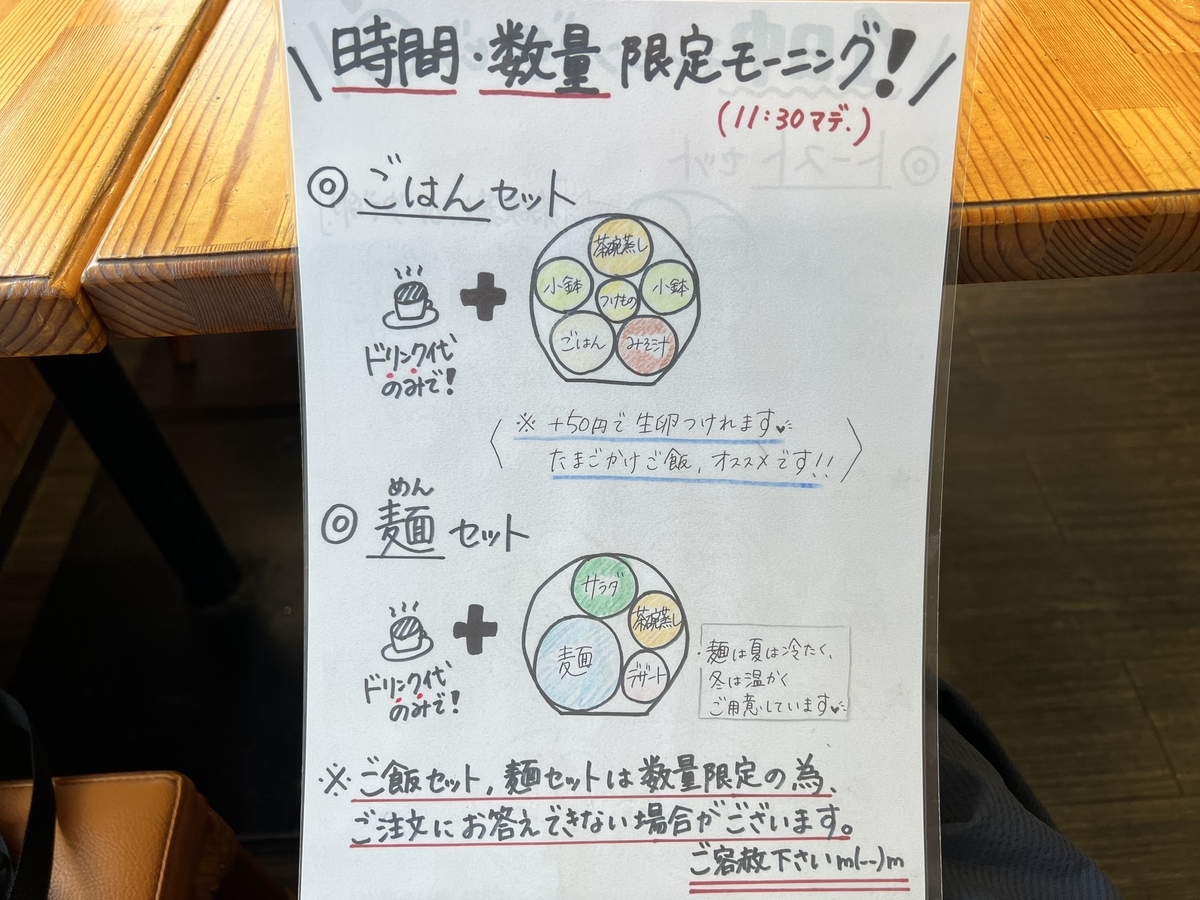 時間・数量 限定モーニング!
(11:30マデ.)
◎ ごはんセット
ドリンク代
のみで!
茶碗蒸し
小鉢
つけもの
小鉢
ごはん
みそ汁
※ +50円で生卵つけれます
たまごかけご飯, オススメです!!
めん
◎ 麺 セット
ドリンク代
のみで!
サラダ
茶碗蒸し
麺
デザート
・麺は夏は冷たく、
冬は温かく
ご用意しています
※ご飯セット, 麺セットは数量限定の為、
ご注文にお答えできない場合がございます。
ご容赦下さいm(--)m
◎トーストセット